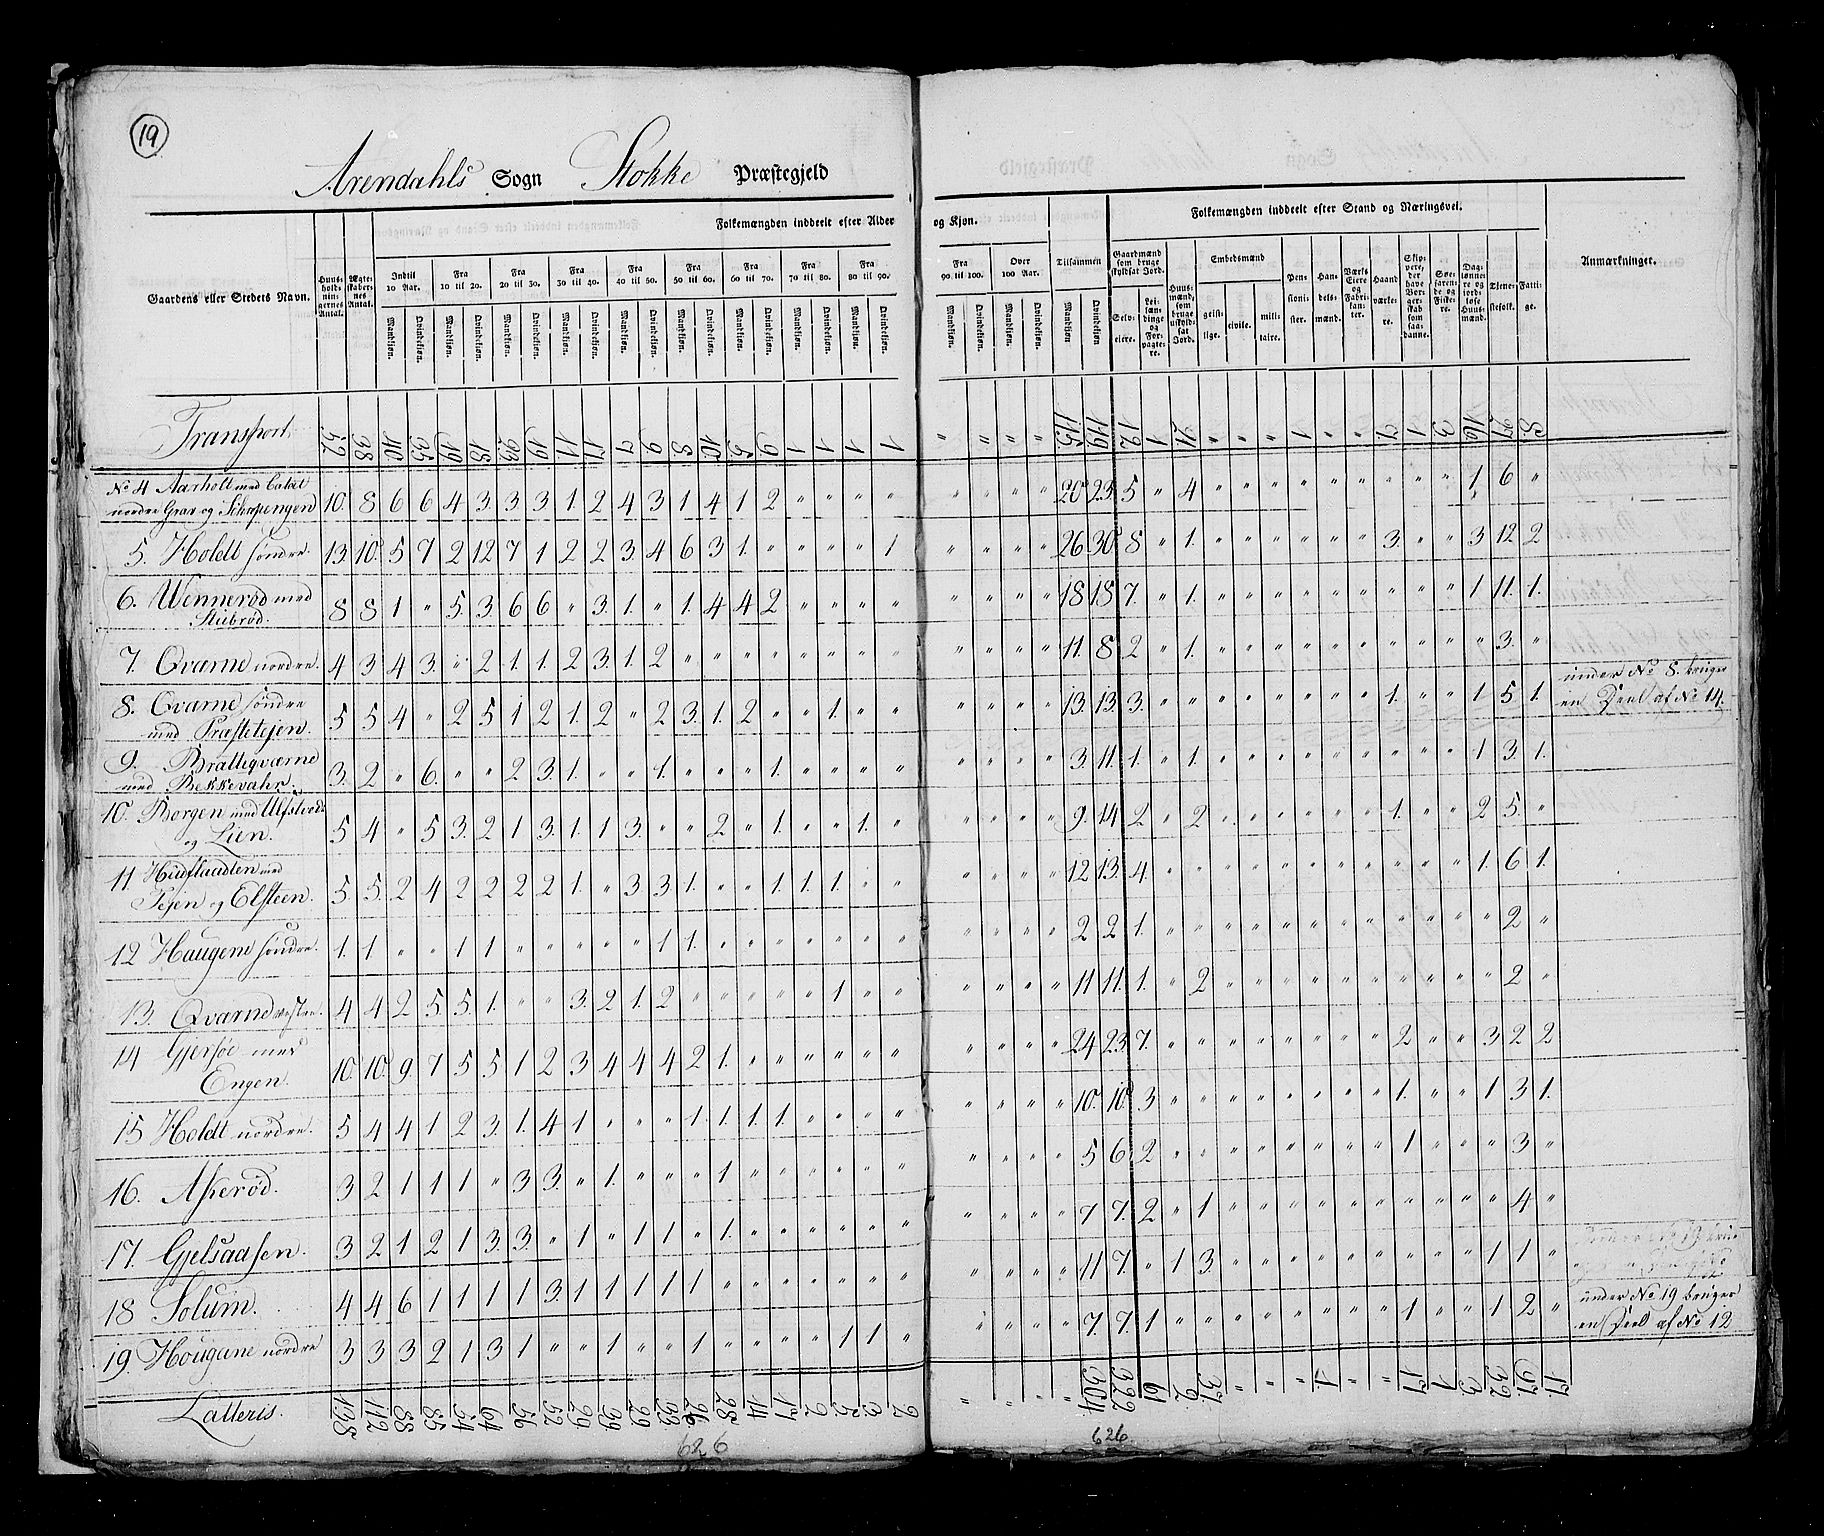 19
Arendahls Sogn Stokke Præstegjeld
Gaardens eller Stedets Navn.
Huusholdningernes Antal.
Ægteskabernes Antal.
Folkemængden inddeelt efter Alder og Kjøn.
Indtil 10 Aar. Fra 10 til 20. Fra 20 til 30. Fra 30 til 40. Fra 40 til 50. Fra 50 til 60. Fra 60 til 70. Fra 70 til 80. Fra 80 til 90. Fra 90 til 100. Over 100 Aar. Tilsammen
Mandkjøn. Qvindekjøn.
Folkemængden inddeelt efter Stand og Næringsvei.
Gaardmænd som bruge skyldsat Jord.
Selveiere. Leilændinge og Forpagtere.
Huusmænd, som bruge uskyldsat Jord.
Embedsmænd
geistlige. civile. militaire.
Pensionister. Handelsmænd. Værks Eiere og Fabrikanter. Haandværkere. Skippere, der have Borgerskab som saadanne. Søefarende og Fiskere. Daglønnere og jordløse Huusmænd. Tjenestefolk. Fattige.
Anmærkninger.
Transport. 52. 38. 40. 35. 19. 18. 23. 19. 11. 17. 7. 9. 8. 10. 5. 9. 1 1 1 1 " " " " 115. 119. 12. 1 21. " " " 1 " " 7. 1 3. 16. 27. 8.
No 4 Aarholt med
nordre Grav og 10. 8 6 6 4 3. 3 3 1. 2 4 3 1 4 1 2 " " " " " " " " 20. 23. 5 " 4 " " " " " " " " " 1 6 "
5. Holdt søndre. 13. 10. 5 7 2 12 7 1 2 2 3 4 6 3 1. " " " " 1 " " " " 26. 30. 8 " 1. " " " " " " 3. " " 3 12 2
6. Wennerød med
Stubrød. 8 8 1 " 5 3 6 6 " 3. 1. " 1. 4 4 2 " " " " " " " " 18 18 7. " 1. " " " " " " " " " 1 11. 1.
7. Qvarne nordre. 4 3 4 3. " 2 1. 1. 2 3. 1. 2 " " " " " " " " " " " " 11. 8 2 " 1. " " " " " " " " " " 3. "
8. Qvarne søndre
med Præstetejen. 5 5 4 " 2 5 1 2 1. 2 " 2 3. 1. 2 " " 1. " " " " " " 13. 13. 3. " " " " " " " " 1. " " 1 5 1. under No 8. bruger
en Deel af No 14.
9. Bratteqværne
med Bekkevahr. 3. 2 " 6. " " 2 3. 1. " " 1. " " " 1. " " " " " " " " 3. 11. 1. " 1 " " " " " " " " " 1 3. 1.
10. Borgen med
og Lien. 5 4 " 5 3. 2 1 3. 1. 1 3. " " 2 " 1. " " 1. " " " " " 9. 14 2 " 2 " " " " " " 1. " " 2 5. "
11 med
Tejen og Elsteen. 5 5. 2 4 2 2 2 2 1. " 3 3 1. " " 1. 1. 1. " " " " " " 12 13. 4. " " " " " " " " " " " 1. 6 1.
12 Haugene søndre. 1. 1 " " 1 1 " " " " " 1 1. " " " " " " " " " " " 2 2 1. " " " " " " " " " " " " 2 "
13. Qvarne vestre. 4 4 2 5 5 1. " " 3. 2 1. 2 " " " " " 1 " " " " " " 11 11. 1. " 2 " " " " " " " " " " 2 "
14 Gjersøe med
Engen. 10. 10. 9. 7 5 5 1 2 3 4 4 4 2 1. " " " " " " " " " " 24 23. 7. " " " " " " " " 2 " " 3 2 2
15 Holdt nordre. 5 4 4 1 2 3. 1. 4 1 " " " 1. 1. 1. 1. " " " " " " " " 10. 10. 3 " " " " " " " " 1. " " 1 3 1.
16. Askerød. 3 2 1 1 1 " 3 3. " 1. " " " 1 " " " " " " " " " " 5 6 2 " " " " " " " " 1 " " " 3 "
17. Gjelsaasen. 3 2 1 2 1 3. 3. " 1 " 1 1 " 1. " " " " " " " " " " 7 7. 2 " 1 " " " " " " " " " " 4 "
18 Solum. 4 4 6 1 1 1 1 3. 1 1 1 1 1 " " " " " " " " " " " 11 7. " 1 3. " " " " " " " " " 1 1 "
19. Hougane nordre 3 3 3 2 1 3 1 " " 1 " " 1 " " " " 1 1 " " " " " 7. 7. 1 " " " " " " " " 1 " " 1 2 " under No 19 bruger
en Deel af No 12
Latteris. 138 112 88 85 54 64 56 52 29 39 29 33. 26 28 14 17 2 5. 3. 2 " " " " 304. 322 61 2. 37. " " " 1. " " 17 1 3. 32 97. 17.
626 626.